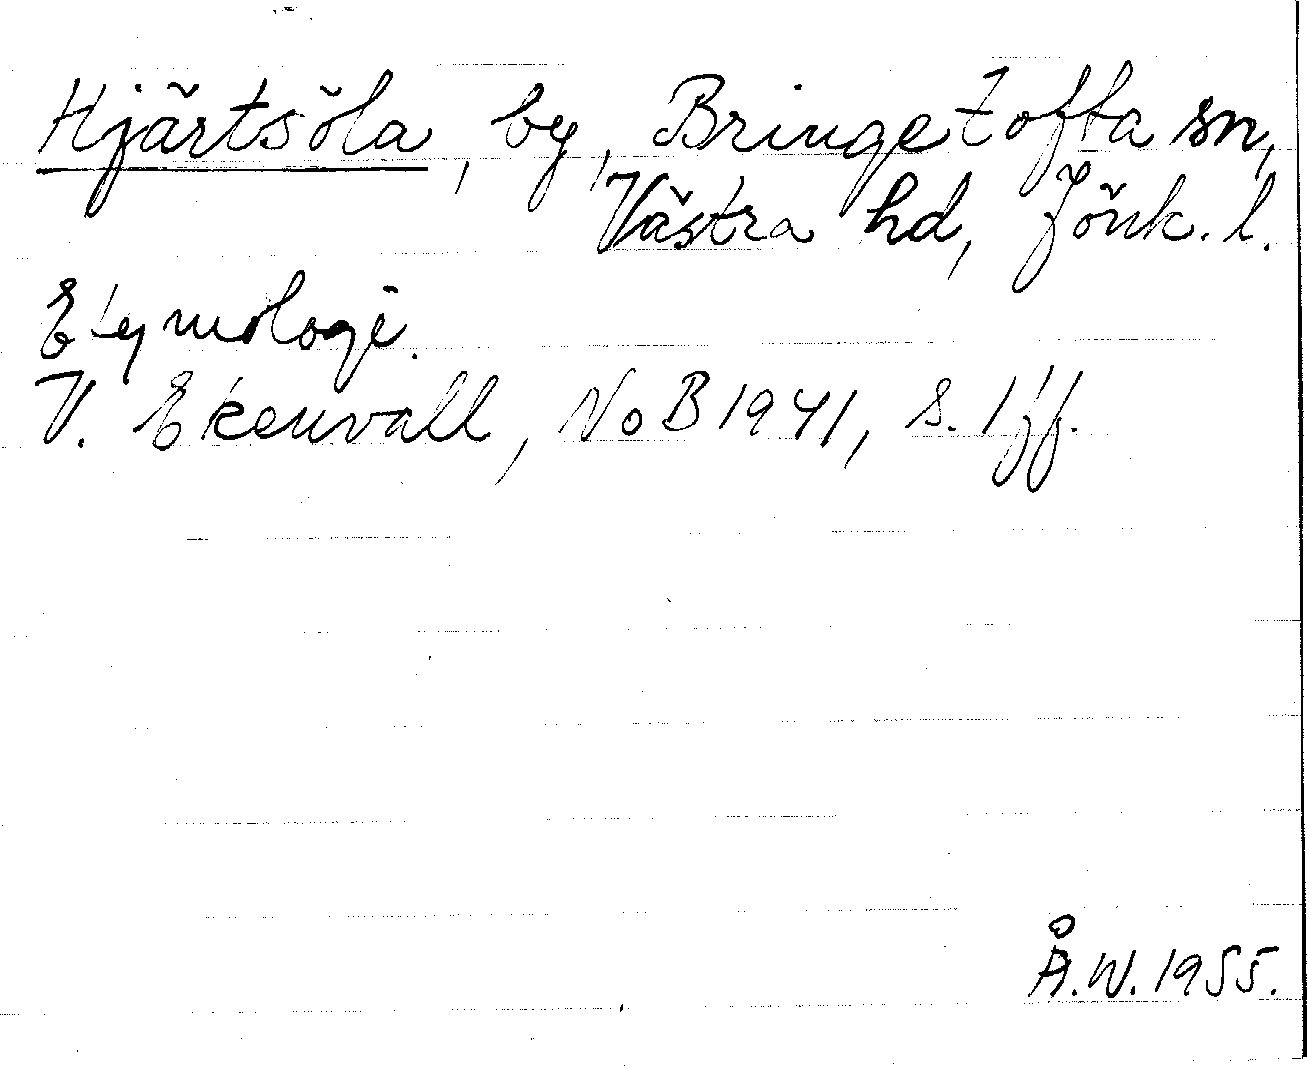 Hjärtsöla, by, Bringetofta sn,
Västra hd, Jönk. l.
Etymologi.
V. Ekenvall, NoB 1941, s. 1 ff.
Å.W. 1955.